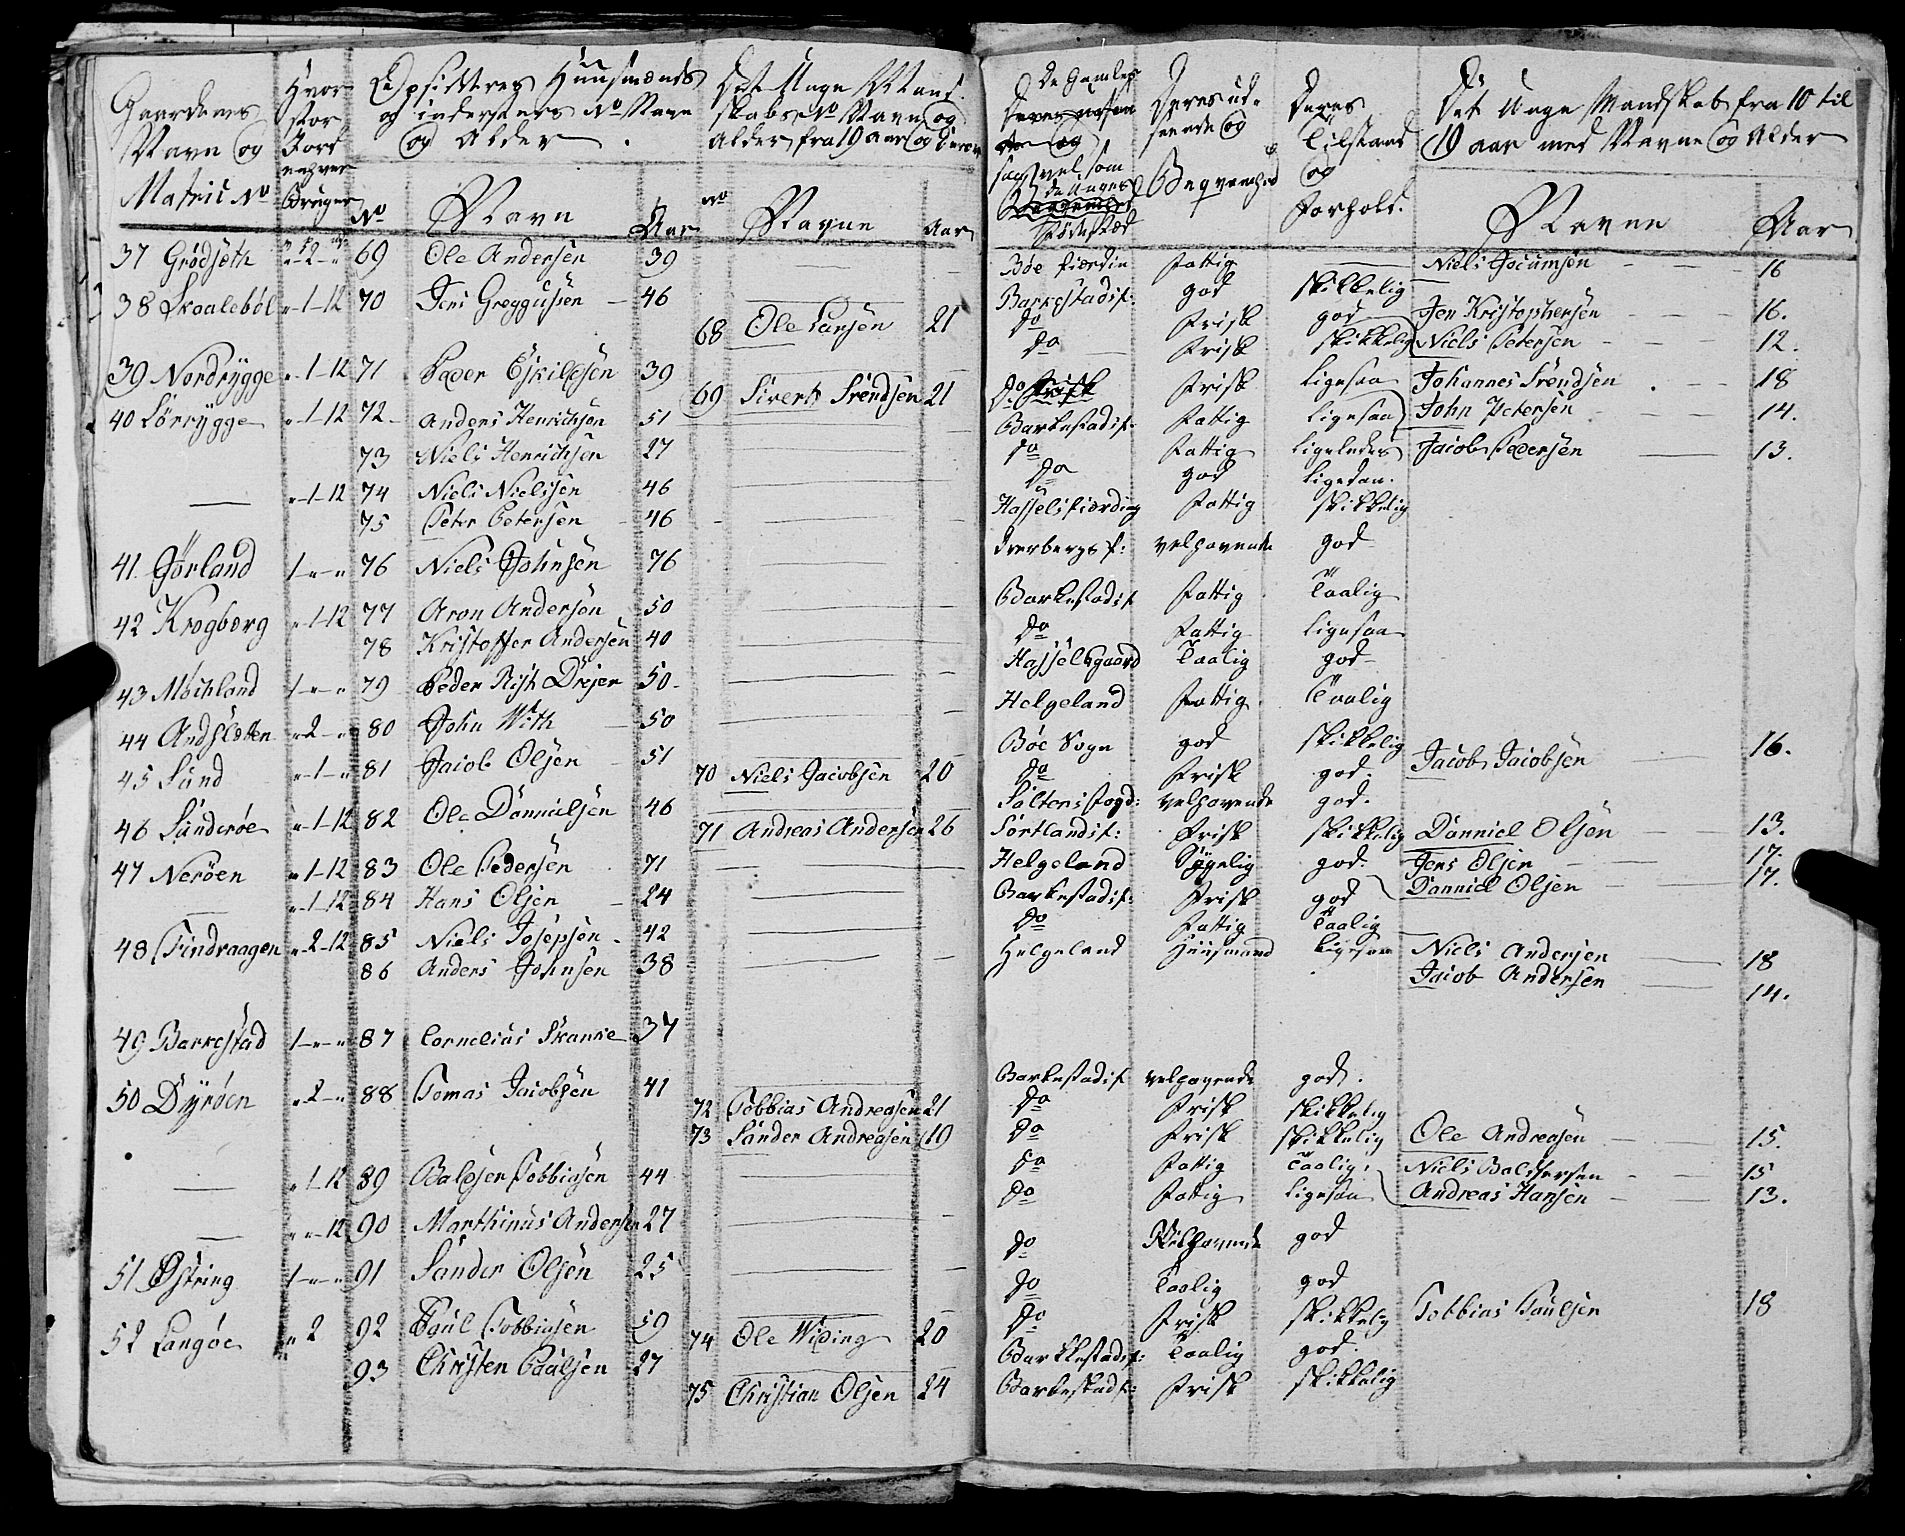 Gaardenes Navn og Matric No
Hvor stor Jord enhver Bruger
Opsidderes Huusmænds og indersters No Navn og Alder
Det Unge Mandskabs No Navn og Alder fra 19 aar og derover
De Gamles og saavel som de Unges Fødested
Deres udseende og Beqvemhed
Deres Tilstand og Forhold.
Det Unge Mandskab fra 10 til 19 aar med Navne og Alder
No Navn Aar No Navne Aar Navne Aar
37 Grødseth 69 Ole Andersen 39 Bøe fierdin fattig Niels Jocumsen 16
38 Skaaleböl „-1-12 70 Jens Greggusen 46 Barkestadsf: god skikkelig
68 Ole Larsen 21 do frisk god Jen Kristophersen 16.
do frisk skikkelig Niels Petersen 12.
39 Nordrÿgge „-1-12 71 Peder Eskildsen 39
69 Sivert Svendsen 21 do frisk ligesaa Johannes Svendsen 18
40 Sörrÿgge „-1-12 72 Anders Henrichsen 51 Barkestadsf: fattig ligesaa John Petersen 14.
73 Niels Henrichsen 27 do fattig ligeledes Jacob Pedersen 13.
„-1-12 74 Niels Nielssen 46 do god ligedan.
75 Peter Petersen 46 Hasselsfiærding fattig skikkelig
41 Jörland 1-„-„ 76 Niels Johnsen 76 velhavende god
42 Krogberg „-1-12 77 Aron Andersen 50 Barkestadsf fattig Taalig
78 Kristoffer Andersen 40 do fattig ligesaa
43 Mochland 1-„-„ 79 Peder Rish Drejer 50 Hasselsgaard Taalig god
44 Andsletten „-2-„ 80 John With 50 Helgeland fattig Taalig
45 Sund „-1-„ 81 Jacob Olsen 51 Bøe Sogn god skikkelig Jacob Jacobsen 16.
70 Niels Jacobsen 20 do frisk god.
46 Sünderøe „-1-12 82 Ole Danniilsen 46 Saltens fogd: velhavende god.
71 Andreas Andersen 26 Sortlandsf: frisk skikkelig Danniel Olsen 13.
47 Neröen „-1-12 83 Ole Pedersen 71 Helgeland Sÿgelig god Jens Olsen 17.
„-1-12 84 Hans Olsen 24 Barkestadsf: frisk god Danniel Olsen 17.
48 Tindraagen „-2-12 85 Niels Josepsen 42 do fattig Taalig
86 Anders Johnsen 38 Helgeland Huusmand ligesaa Niels Andersen 18
Jacob Andersen 14.
49 Barkestad 1-„-„ 87 Cornelius Skanke 37 Barkestadsf velhavende god.
50 Dÿröen „-2-„ 88 Tomas Jacobsen 41
72 Tobbias Andreasen 21 do frisk skikkelig
73 Sander Andreasen 19 do frisk skikkelig Ole Andreasen 15.
„-1-12 89 Baldser Tobbiasen 44 do fattig Taalig Niels Baldsersen 15
„-„-12 90 Marthinus Andersen 27 do fattig ligesaa Andreas Hansen 13.
51 Østring 1-„-„ 91 Sander Olsen 25 do Velhavende god
52 Langøe „ 2 92 Paul Tobbiasen 59 do Taalig god Tobbias Paulsen 18
74 Ole Widing 20 do frisk skikkelig
93 Christen Paulsen 27 Barkkestadsf: Taalig god.
75 Christian Olsen 24 Barkestadsf: frisk skikkelig